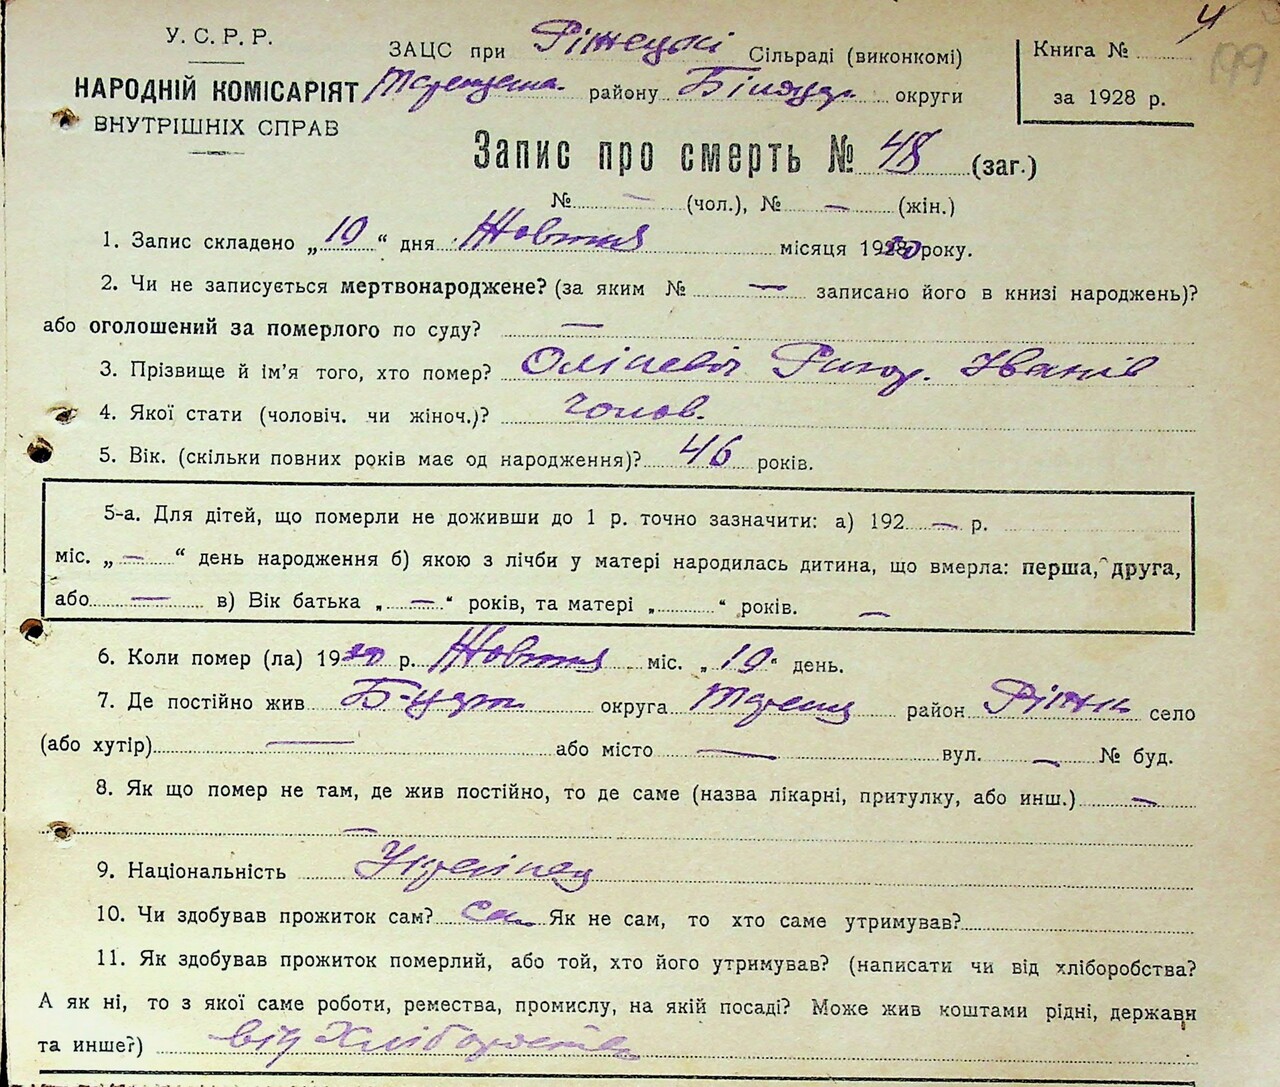 У. С. Р. Р.
НАРОДНІЙ КОМІСАРІЯТ
ВНУТРІШНІХ СПРАВ
ЗАЦС при Ріжецькі Сільраді (виконкомі)
району округи
Книга №
за 1928 р.
4
199
Запис про смерть № 48 (заг.)
№ — (чол.), № — (жін.)
1. Запис складено „10“ дня Жовтня місяця 1930 року.
2. Чи не записується мертвонароджене? (за яким № — записано його в книзі народжень)?
або оголошений за померлого по суду? —
3. Прізвище й ім'я того, хто помер? Ригор. Іванів
4. Якої стати (чоловіч. чи жіноч.)? чолов.
5. Вік. (скільки повних років має од народження)? 46 років.
5-а. Для дітей, що померли не доживши до 1 р. точно зазначити: а) 192 — р.
міс. „ — “ день народження б) якою з лічби у матері народилась дитина, що вмерла: перша, друга,
або — в) Вік батька „ — “ років, та матері „ “ років. —
6. Коли помер (ла) 1930 р. Жовтня міс. „10“ день.
7. Де постійно жив округа район село
(або хутір) — або місто — вул. — № буд.
8. Як що помер не там, де жив постійно, то де саме (назва лікарні, притулку, або инш.) —
—
9. Національність Українец
10. Чи здобував прожиток сам? Сам Як не сам, то хто саме утримував?
11. Як здобував прожиток померлий, або той, хто його утримував? (написати чи від хліборобства?
А як ні, то з якої саме роботи, ремества, промислу, на якій посаді? Може жив коштами рідні, держави
та инше?) від Хліборобства